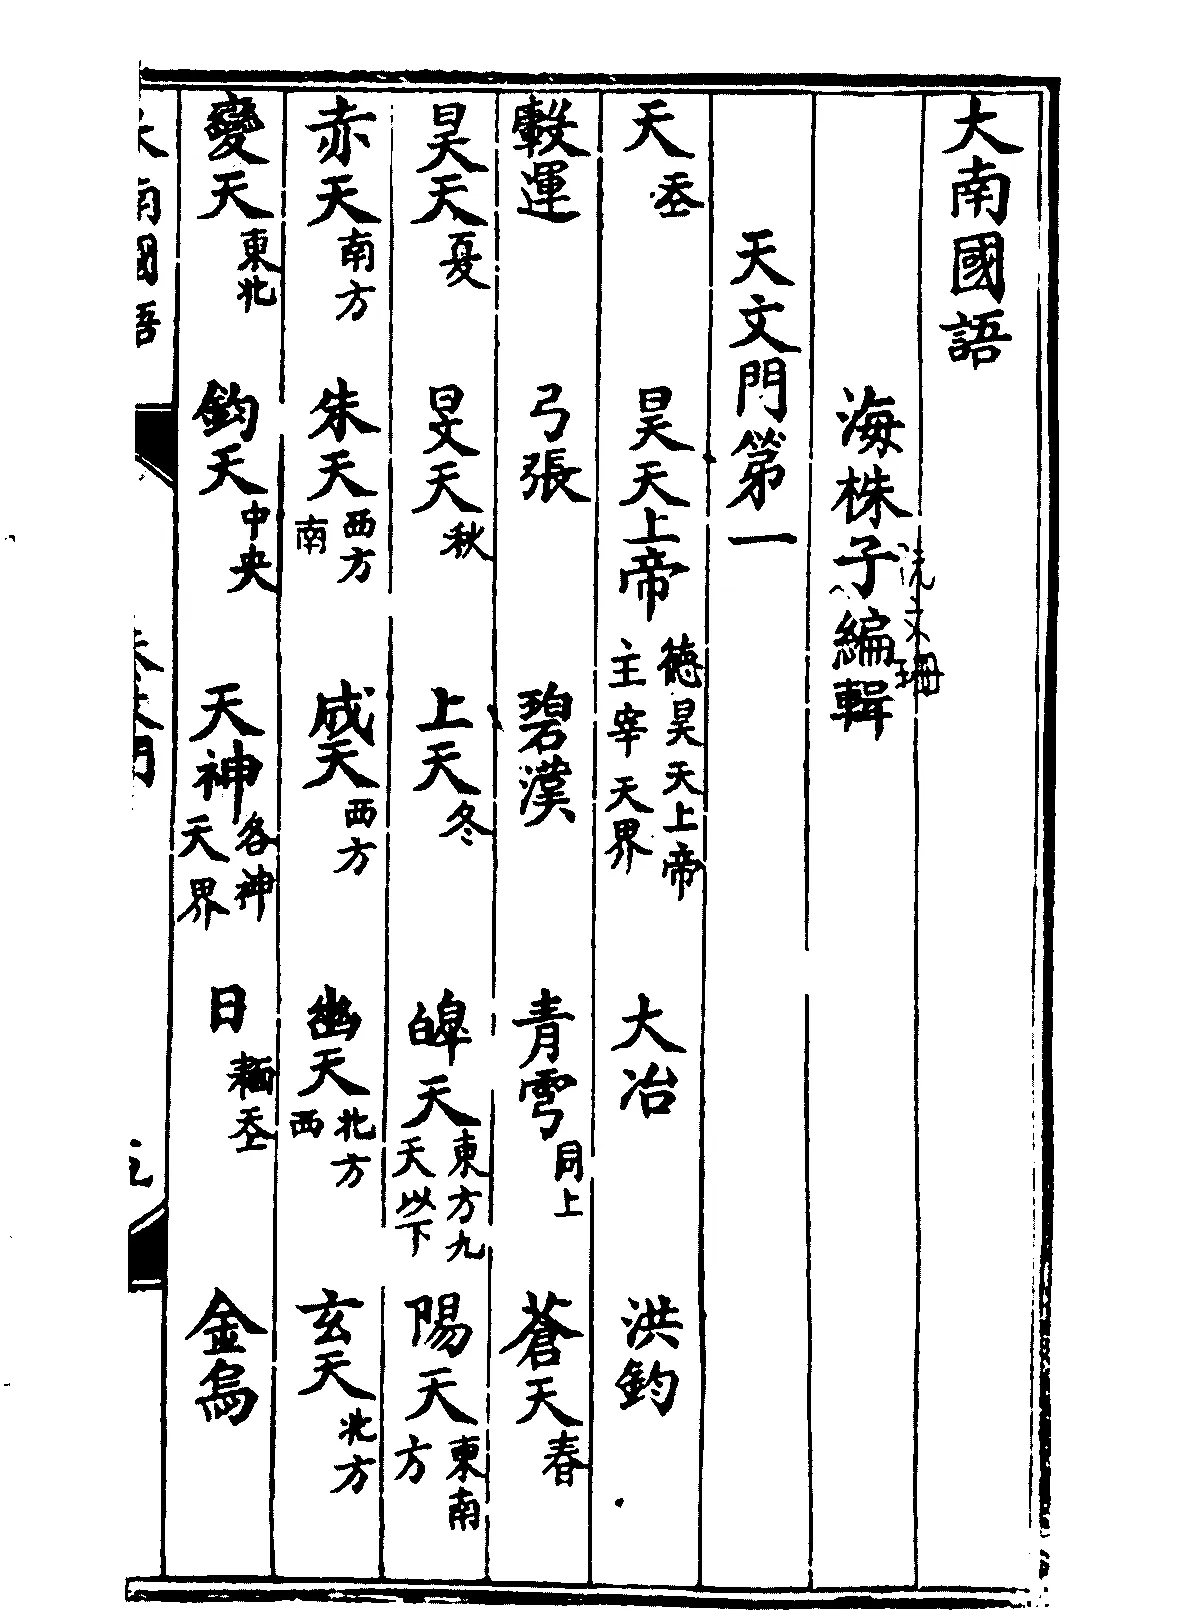 大南國語
海株子編輯
阮文珊
天文門第一
天 𡗶 昊天上帝 德昊天上帝主宰天界 大冶 洪鈞
轂運 弓張 碧漢 青雩 同上 蒼天 春
昊天 夏 旻天 秋 上天 冬 皞天 東方九天以下 陽天 東南方
赤天 南方 朱天 西方南 成天 西方 幽天 北方西 玄天 北方
變天 東北 鈞天 中央 天神 各神天界 日 𩈘𡗶 金烏
大南國語 天文門